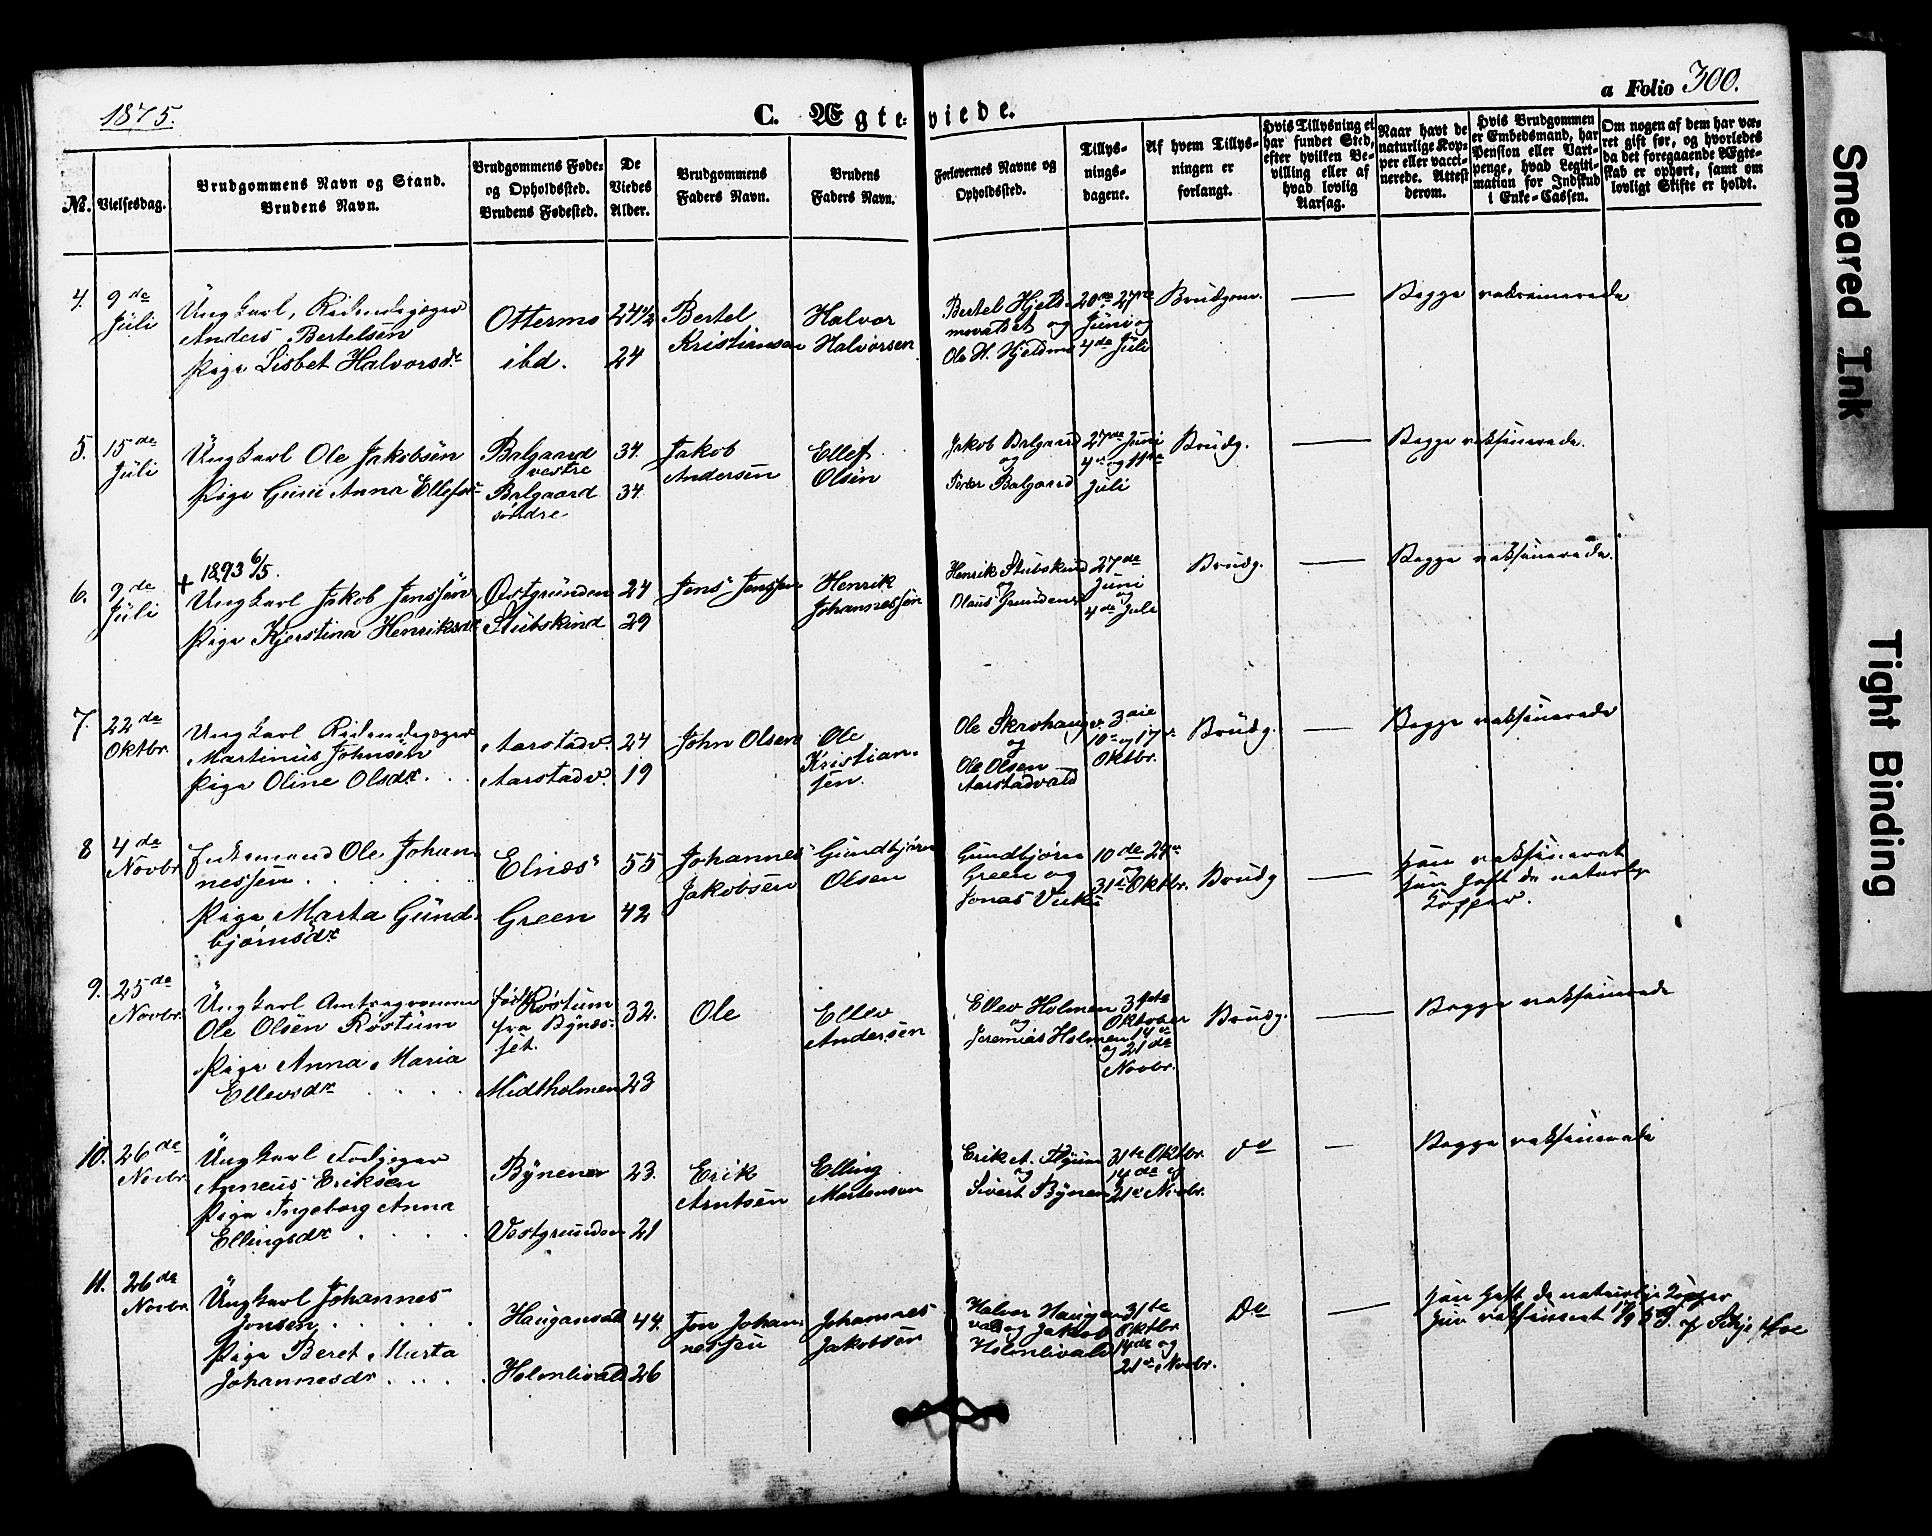 1875.
C. Ægteviede.
a Folio 300.
No.
Vielsesdag.
Brudgommens Navn og Stand.
Brudens Navn.
Brudgommens Føde-
og Opholdssted.
Brudens Fødested.
De
Viedes
Alder.
Brudgommens
Faders Navn.
Brudens
Faders Navn.
Forlovernes Navne og
Opholdssted.
Tillys-
nings-
dagene.
Af hvem Tillys-
ningen er
forlangt.
Hvis Tillysning ei
har fundet Sted,
efter hvilken Be-
villing eller af
hvad lovlig
Aarsag.
Naar havt de
naturlige Kop-
per eller vacci-
nerede. Attest
derom.
Hvis Brudgommen
er Embedsmand, har
Pension eller Vart-
penge, hvad Legiti-
mation for Indskud
i Enke-Cassen.
Om nogen af dem har væ-
ret gift før, og hvorledes
da det foregaaende Ægte-
skab er ophørt, samt om
lovligt Skifte er holdt.
4. 9de Juli
Ungkarl,
Anders Bertelsen
Pige Lisbet Halvorsdr.
Ottermo
ibd.
24½
24
Bertel
Kristiansen
Halvor
Halvorsen
Bertel
og
Ole H. Hjeldmo
20de 27de
Juni og
4de Juli
Brudgom.
Begge vaksinerede
5. 15de Juli
Ungkarl Ole Jakobsen
Pige Guru Anna Ellefsdr
Balgaard
vestre
Balgaard
søndre
34.
34
Jakob
Andersen
Ellef
Olsen
Jakob Balgaard
og
Peder Balgaard
27de Juni
4de og 11te
Juli
Brudg.
Begge vaksinerede.
6. 9de Juli
+ 1893 6/5.
Ungkarl Jakob Jenssen
Pige Kjerstina Henriksdr
Østgrunden
Stubskind
24
29
Jens Jenssen
Henrik
Johannessen
Henrik Stubskind
og
Olaus Grunden
27de
Juni
og
4de Juli
Brudg.
Begge vaksinerede.
7. 22de Oktbr.
Ungkarl
Martinus Johnsen
Pige Oline Olsdr.
Aarstadv.
Aarstadv.
24
19
John Olsen
Ole
Kristian-
sen.
Ole Skrohaug
og
Ole Olsen
Aarstadvald
3die
10de og 17de
Oktbr.
Brudg.
Begge vaksinerede
8 4de Novbr.
Enkemand Ole Johan-
nessen
Pige Marta Gund-
bjørnsdr.
Elnæs
Green
55
42
Johannes
Jakobsen
Gundbjørn
Olsen
Gundbjørn
Green og
Jonas Vuku
10de 24de
31te Oktbr.
Brudg
Han vaksinerat
Hun haft de naturlige
Kopper.
9. 25de Novbr.
Ungkarl Amtsagronom
Ole Olsen Røstum
Pige Anna Maria
Ellevsdr
født Røstum
fra Bynæs-
set.
Midtholmen
32.
23
Ole
Ellev
Andersen
Ellev Holmen
og
Jeremias Holmen
31te
Oktober
14de
og 21de
Novbr.
Brudg.
Begge vaksinerede
10. 26de Novbr
Ungkarl
Agneus Eriksen
Pige Ingeborg Anna
Ellingsdr
Bynener
Vestgrunden
23.
21
Erik
Arntsen
Elling
Mortensen
Erik A.
og
Sivert Bynen
31te Oktbr.
14de og
21de Novbr.
do
Begge vaksinerede
11. 26de Novbr.
Ungkarl Johannes
Jonsen
Pige Beret Marta
Johannesdr
Hauganvald
Holmlivald
44.
26
Jon Johan-
nessen
Johannes
Jakobsen
Halvor Haugan-
vald og Jakob
Holmlivald
31te
Oktbr
14de og
21de Novbr.
Do
Han haft de naturlige Kopper
Hun vaksinert
Smeared Ink
Tight Binding